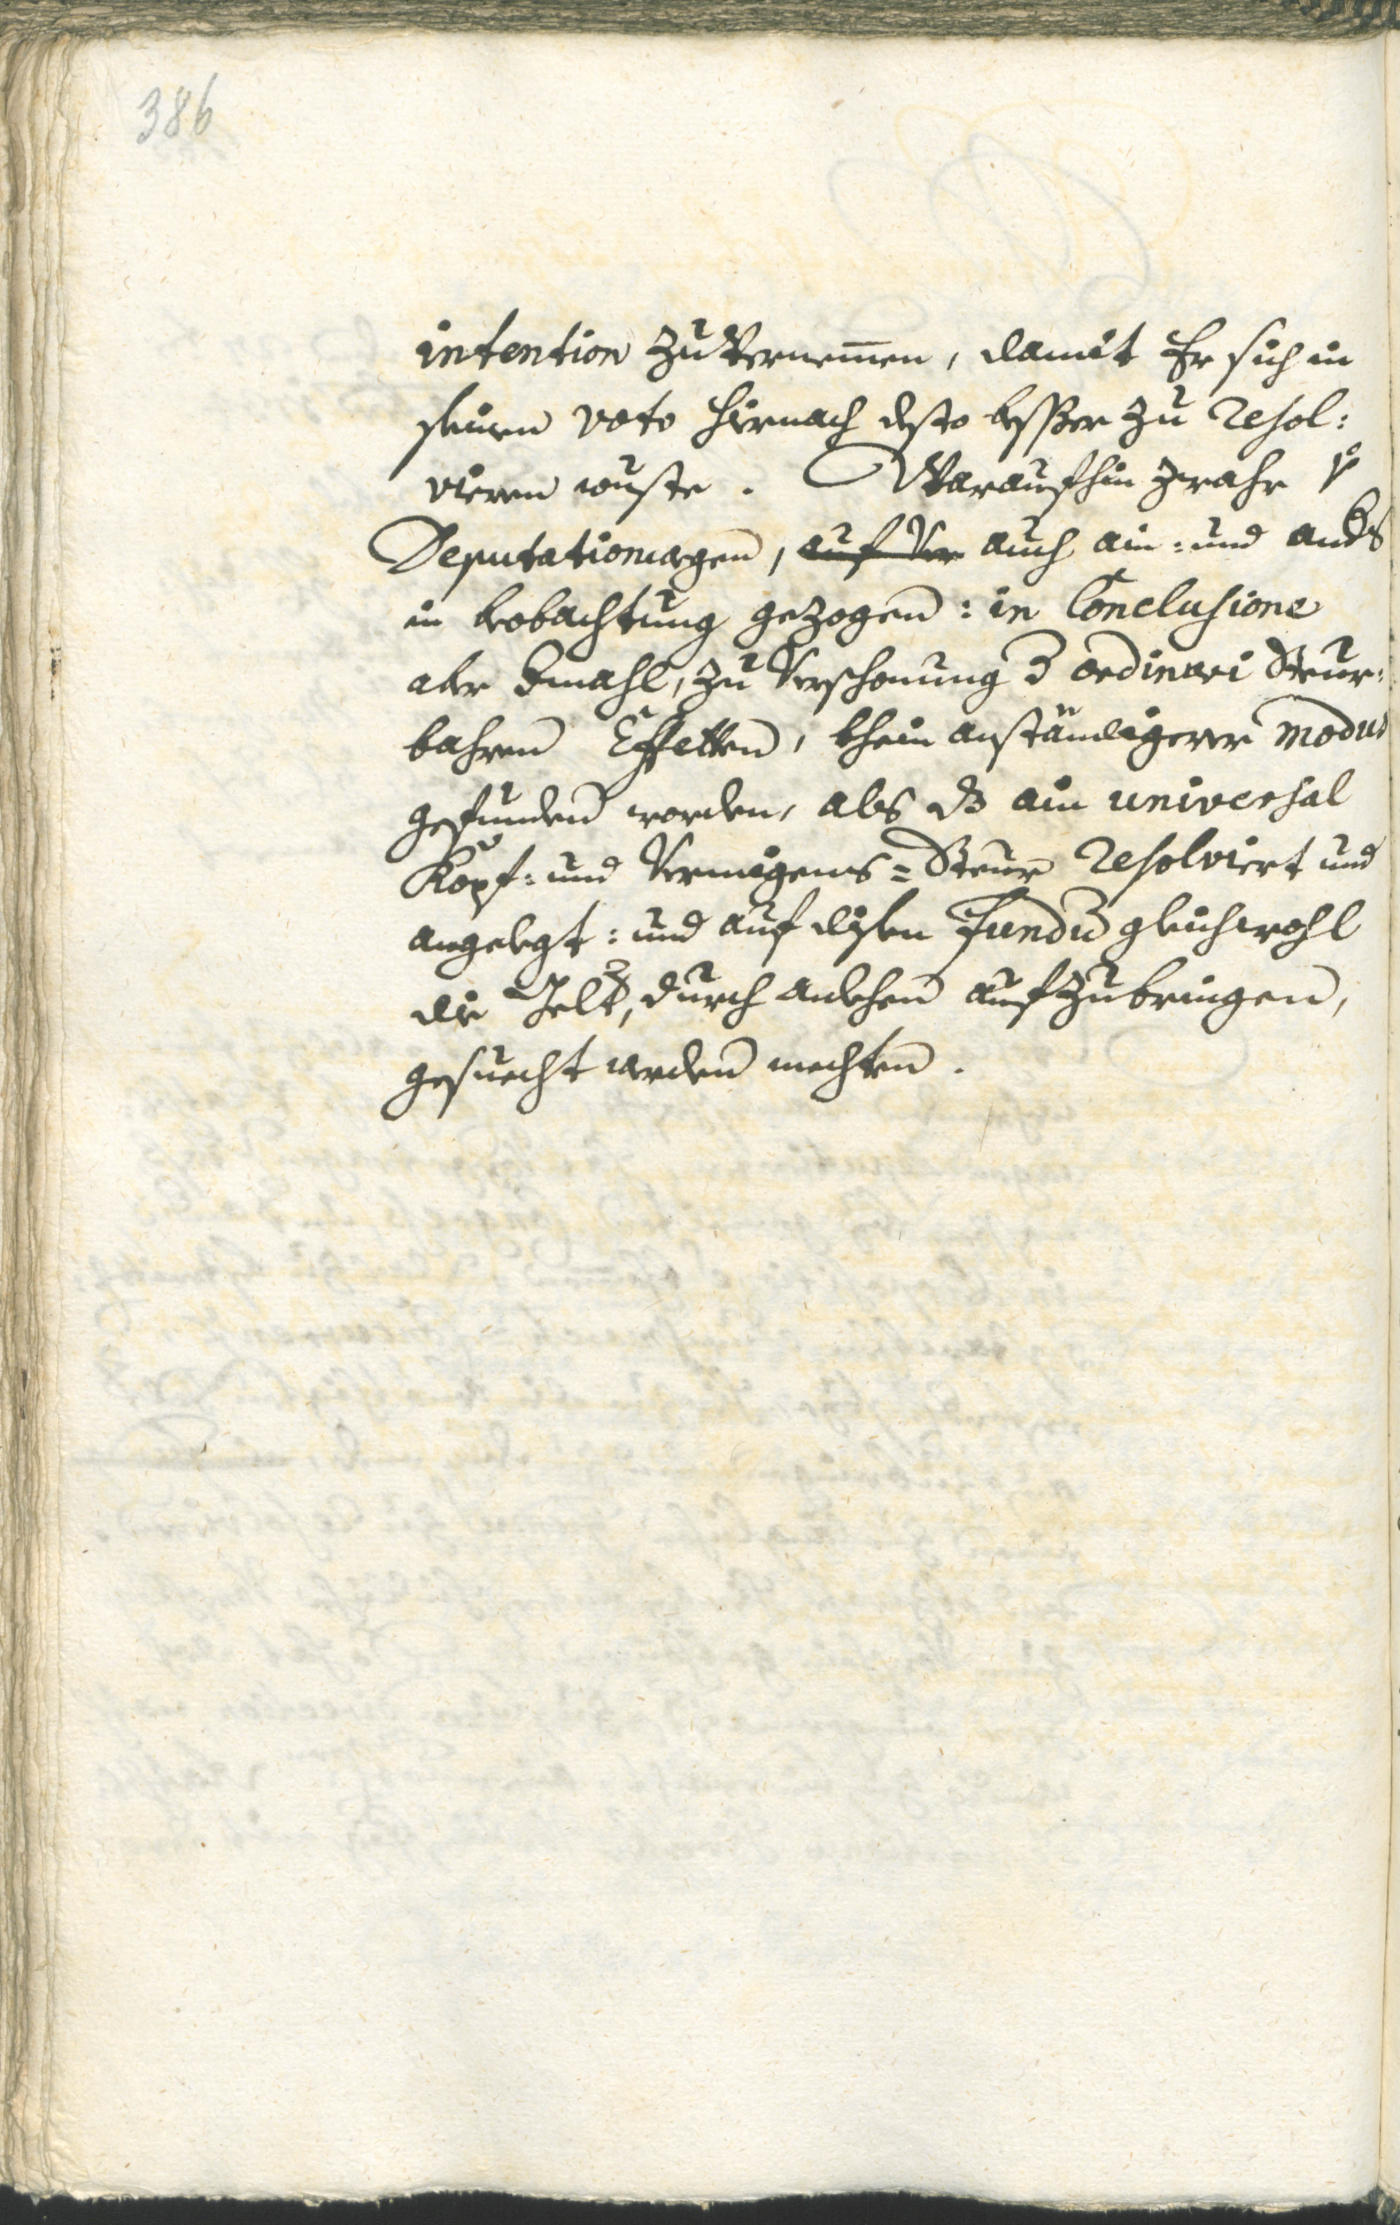 386
intention zu Vernemen, damit Er sich in
seinen voto hiernach desto besser zu resol:
vieren wuste. Warauf hin zwahr
Deputationwegen, auf Ver auch ain: und anders
in beobachtung gezogen: in Conclusione
aber dmahl, zu Verschonung d ordinari Steur:
bahren Effetten, khein anständigerer modus
gefunden worden, als dz ain universal
Kopf: und Vermigens=Steur resolviert und
angelegt: und auf disen Fundu gleichwohl
die Gelter, durch anlehen aufzubringen,
gesuecht werden mechten.